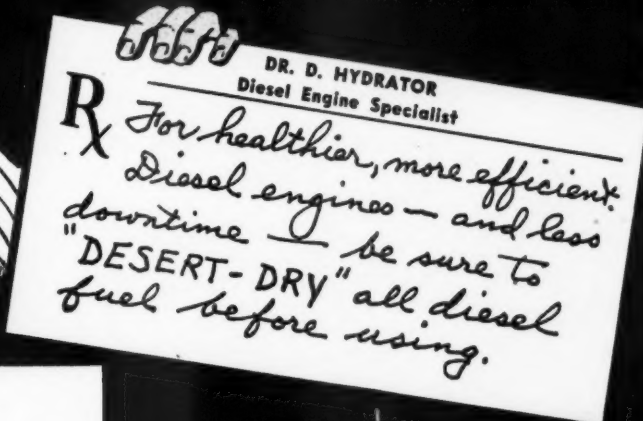 DR. D. HYDRATOR
Diesel Engine Specialist
Rx For healthier, more efficient
Diesel engines — and less
downtime — be sure to
"DESERT-DRY" all diesel
fuel before using.